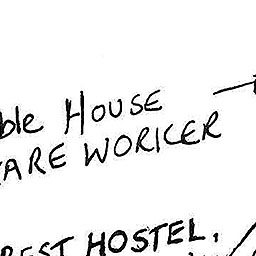 ble HOUSE
CARE WORKER
REST HOSTEL,